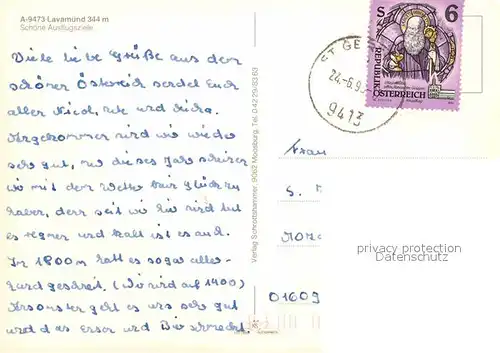 A-9473-Lavamünd 344 m
Schöne Ausflugsziele
Viele liebe Grüße aus dem
schönen Österreich sendet Euch
allen Nicol, Ute und
Angekommen sind wir wieder
sehr gut, nur dieses Jahr scheinen
wir mit dem Wetter kein Glück zu
haben, denn seit wir hier sind tut
es regnen und kalt ist es auch.
In 1800 m hatt es sogar alles
geschneit. (Wir sind auf 1400)
Ansonsten geht es uns sehr gut
und das Essen und Bier schmeckt
Verlag Schrottshammer, 9062 Moosburg, Tel. 0 42 29/33 63
ST GE
24.-6.9
9413
S 6
REPUBLIK
ÖSTERREICH
Frau
S.
01609
privacy protection
Datenschutz